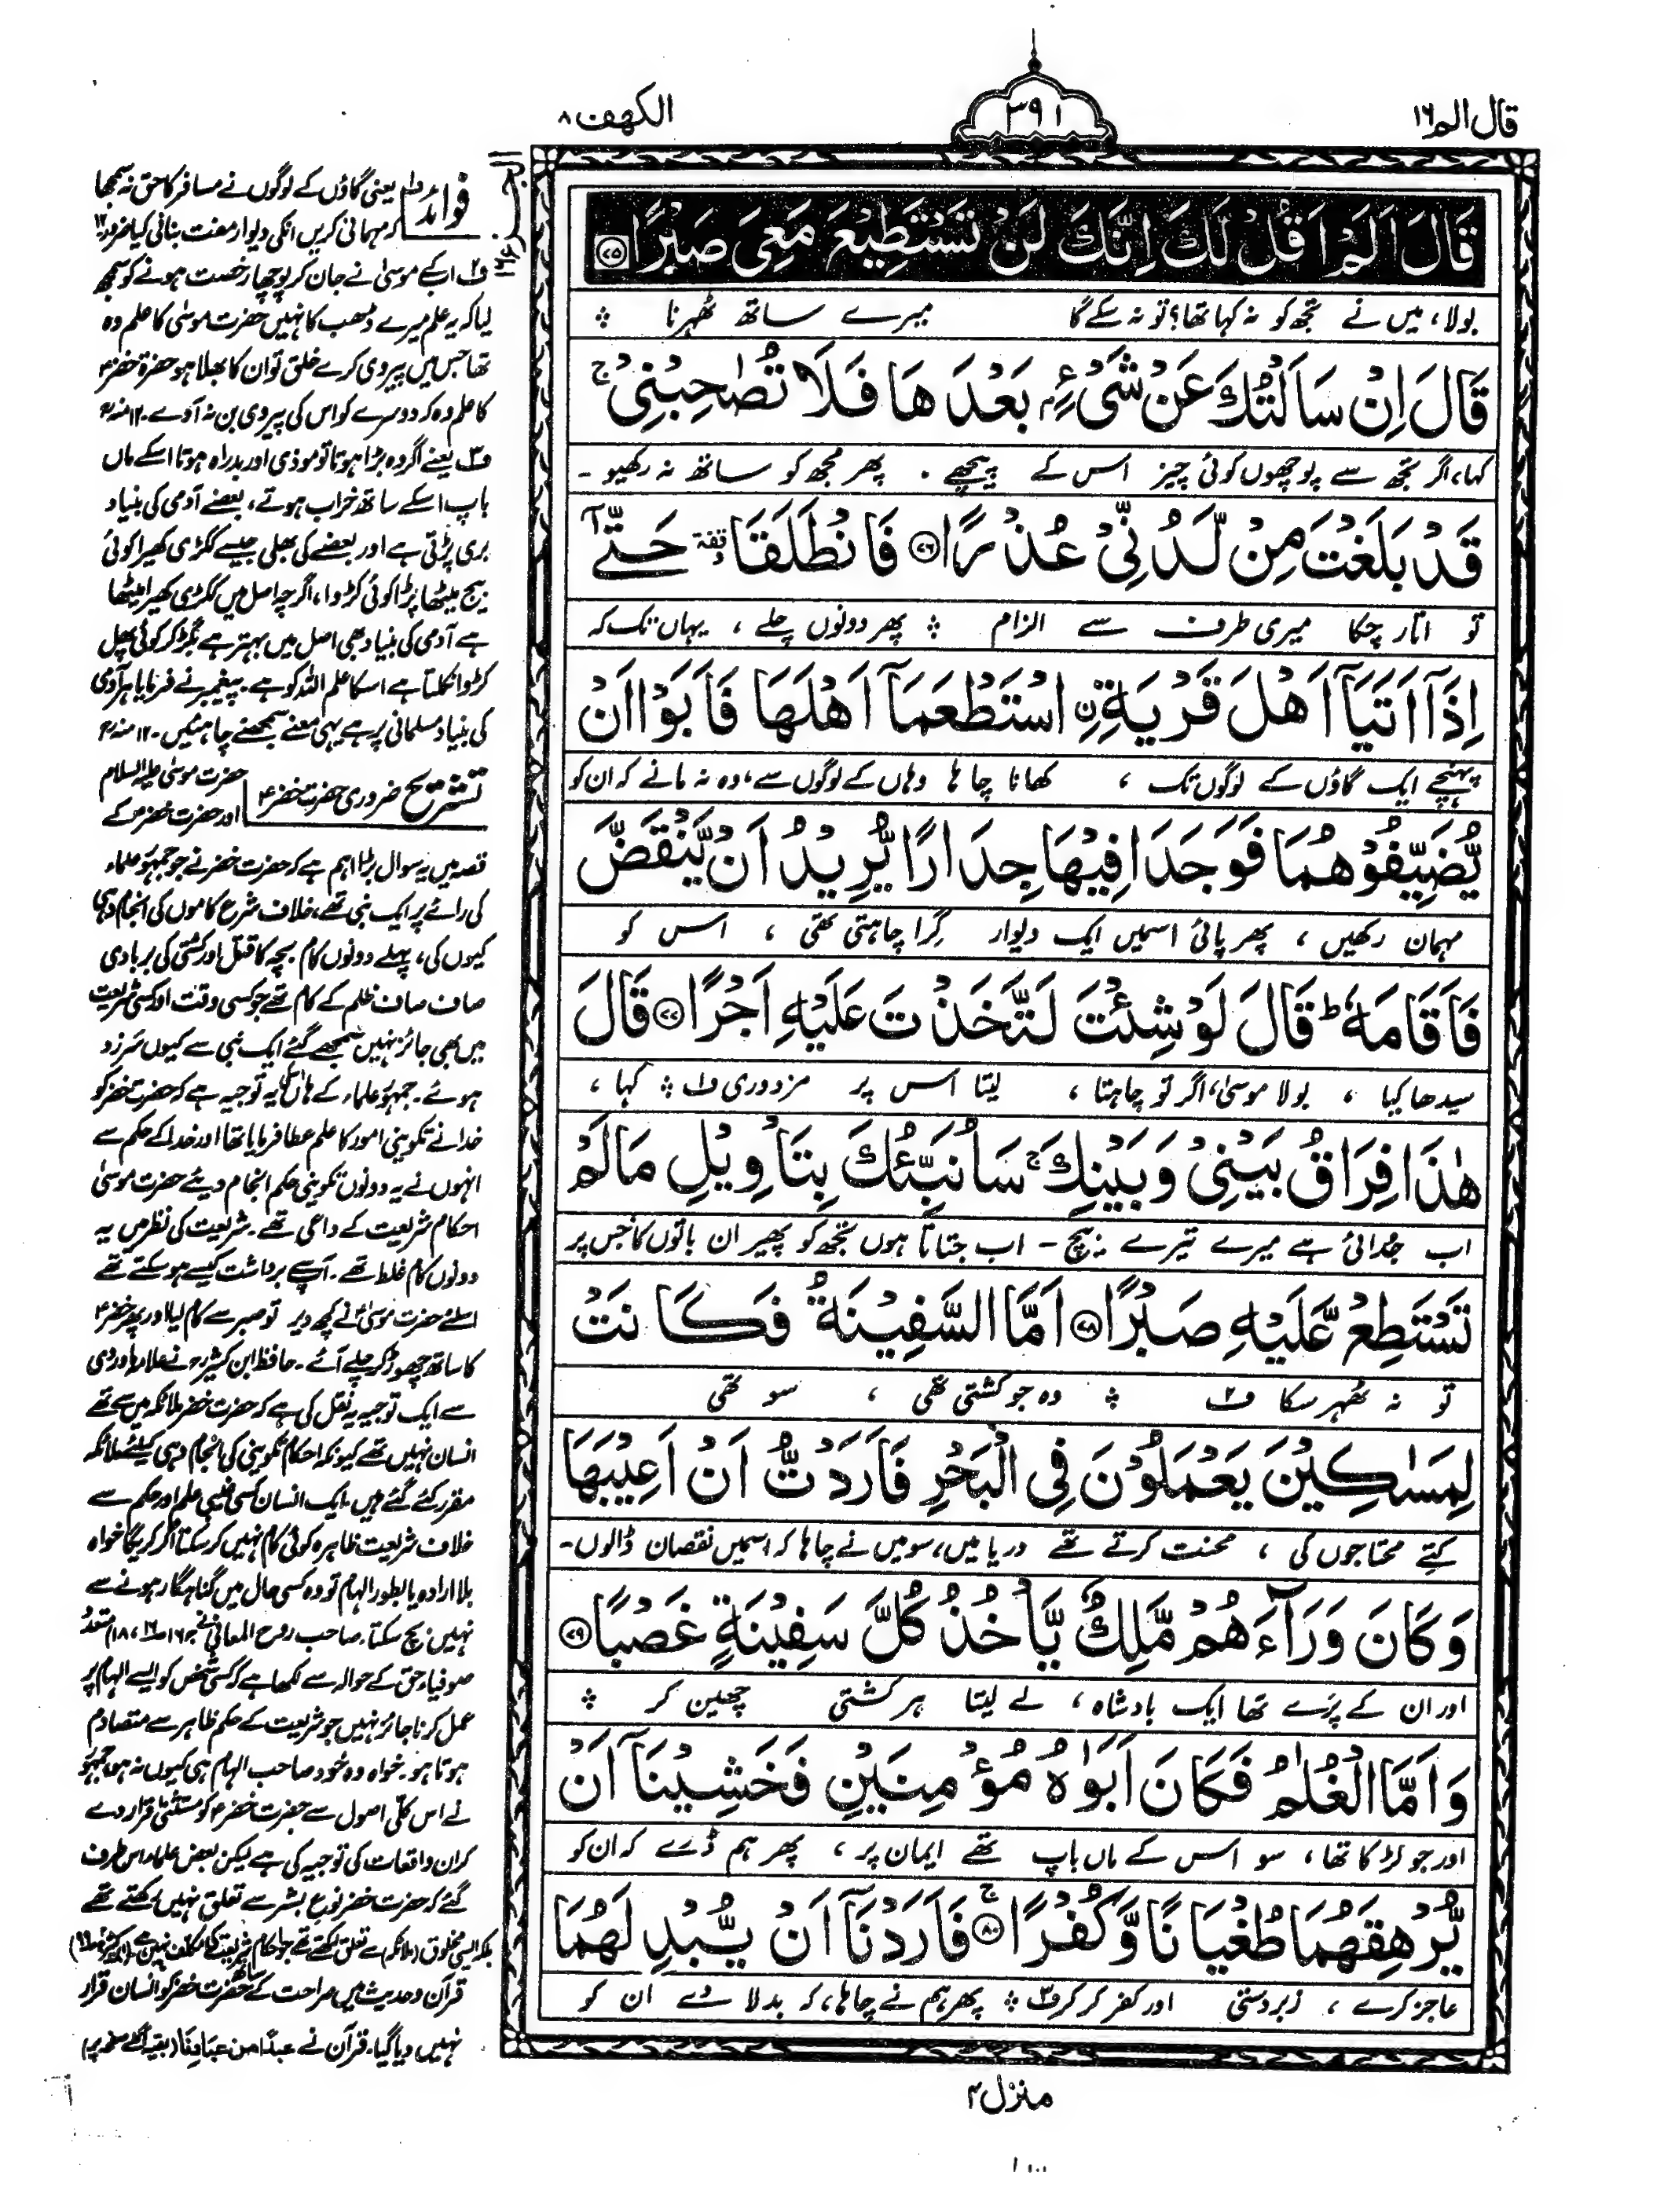 قال الم ۱۶
۳۹۱
الكهف ۸
قَالَ اَلَمْ اَقُلْ لَّكَ اِنَّكَ لَنْ تَسْتَطِيْعَ مَعِيَ صَبْرًا ﴿۷۵﴾
بولا، میں نے تجھ کو نہ کہا تھا؟ تو نہ سکے گا میرے ساتھ ٹھہرنا ⁘
قَالَ اِنْ سَاَلْتُكَ عَنْ شَیْءٍۭ بَعْدَهَا فَلَا تُصٰحِبْنِیْ ۚ
کہا، اگر تجھ سے پوچھوں کوئی چیز اس کے پیچھے . پھر مجھ کو ساتھ نہ رکھیو ۔
قَدْ بَلَغْتَ مِنْ لَّدُنِّیْ عُذْرًا ﴿۷۶﴾ فَانْطَلَقَا وقفة حَتّٰۤی
تو اتار چکا میری طرف سے الزام ⁘ پھر دونوں چلے ، یہاں تک کہ
اِذَاۤ اَتَیَاۤ اَهْلَ قَرْیَةِ ِۨاسْتَطْعَمَاۤ اَهْلَهَا فَاَبَوْا اَنْ
پہنچے ایک گاؤں کے لوگوں تک ، کھانا چاہا وہاں کے لوگوں سے، وہ نہ مانے کہ ان کو
یُّضَیِّفُوْهُمَا فَوَجَدَا فِیْهَا جِدَارًا یُّرِیْدُ اَنْ یَّنْقَضَّ
مہمان رکھیں ، پھر پائی اسمیں ایک دیوار گِرا چاہتی تھی ، اس کو
فَاَقَامَهٗ ؕ قَالَ لَوْ شِئْتَ لَتَّخَذْتَ عَلَیْهِ اَجْرًا ﴿۷۷﴾ قَالَ
سیدھا کیا ، بولا موسیٰ، اگر تو چاہتا ، لیتا اس پر مزدوری ف۱ ⁘ کہا ،
هٰذَا فِرَاقُ بَیْنِیْ وَبَیْنِكَ ۚ سَاُنَبِّئُكَ بِتَاْوِیْلِ مَا لَمْ
اب جُدائی ہے میرے تیرے بیچ ۔ اب جتاتا ہوں تجھ کو پھیر ان باتوں کا جس پر
تَسْتَطِعْ عَّلَیْهِ صَبْرًا ﴿۷۸﴾ اَمَّا السَّفِیْنَةُ فَكَانَتْ
تو نہ ٹھہر سکا ف۲ ⁘ وہ جو کشتی تھی ، سو تھی
لِمَسٰكِیْنَ یَعْمَلُوْنَ فِی الْبَحْرِ فَاَرَدْتُّ اَنْ اَعِیْبَهَا
کتے محتاجوں کی ، محنت کرتے تھے دریا میں، سو میں نے چاہا کہ اسمیں نقصان ڈالوں ۔
وَكَانَ وَرَآءَهُمْ مَّلِكٌ یَّاْخُذُ كُلَّ سَفِیْنَةٍ غَصْبًا ﴿۷۹﴾
اور ان کے پرے تھا ایک بادشاہ ، لے لیتا ہر کشتی چھین کر ⁘
وَاَمَّا الْغُلٰمُ فَكَانَ اَبَوٰهُ مُؤْمِنَیْنِ فَخَشِیْنَاۤ اَنْ
اور جو لڑکا تھا، سو اس کے ماں باپ تھے ایمان پر ، پھر ہم ڈرے کہ ان کو
یُّرْهِقَهُمَا طُغْیَانًا وَّكُفْرًا ﴿۸۰﴾ ۚ فَاَرَدْنَاۤ اَنْ یُّبْدِلَهُمَا
عاجز کرے ، زبردستی اور کفر کر کر ف۳ ⁘ پھر ہم نے چاہا، کہ بدلا دے ان کو
منزل ۴
فوائد ف۱ یعنی گاؤں کے لوگوں نے مسافر کا حق نہ سمجھا
کہ مہمانی کریں انکی دیوار مفت بنانی کیا ضرور ۱۲
ف۲ اب کے موسیٰ نے جان کر پوچھا رخصت ہونے کو سمجھ
لیا کہ یہ علم میرے ڈھب کا نہیں حضرت موسیٰ کا علم وہ
تھا جس میں پیروی کرے خلق تو ان کا بھلا ہو حضرۃ خضرؑ
کا علم وہ کہ دوسرے کو اس کی پیروی بن نہ آوے ۔ ۱۲ منہؒ
ف۳ یعنے اگر وہ بڑا ہوتا تو موذی اور بدراہ ہوتا اسکے ماں
باپ اسکے ساتھ خراب ہوتے، بعضے آدمی کی بنیاد
بری پڑتی ہے اور بعضے کی بھلی جیسے ککڑی کھیرا کوئی
بیج میٹھا پڑا کوئی کڑوا، اگرچہ اصل میں ککڑی کھیرا میٹھا
ہے آدمی کی بنیاد بھی اصل میں بہتر ہے بگڑ کر کوئی پھل
کڑوا نکلتا ہے اسکا علم اللہ کو ہے ۔ پیغمبر نے فرمایا ہر آدمی
کی بنیاد مسلمانی پر ہے یہی معنے سمجھنے چاہئیں ۔ ۱۲ منہؒ
تشریح ضروری حضرت خضرؑ حضرت موسیٰ علیہ السلام
اور حضرت خضرؑ کے
قصہ میں یہ سوال بڑا اہم ہے کہ حضرت خضر نے جو جمہور علماء
کی رائے پر ایک نبی تھے، خلاف شرع کاموں کی انجام دہی
کیوں کی، پہلے دونوں کام بچہ کا قتل اور کشتی کی بربادی
صاف صاف ظلم کے کام تھے جو کسی وقت اور کسی شریعت
میں بھی جائز نہیں سمجھے گئے ایک نبی سے کیوں سرزد
ہوئے ۔ جمہور علماء کے ہاں یہ توجیہ ہے کہ حضرت خضر کو
خدا نے تکوینی امور کا علم عطا فرمایا تھا اور خدا کے حکم سے
انہوں نے یہ دونوں تکوینی حکم انجام دیئے حضرت موسیٰ
احکام شریعت کے داعی تھے ۔ شریعت کی نظر میں یہ
دونوں کام غلط تھے ۔ آپ سے برداشت کیسے ہو سکتے تھے
اسلئے حضرت موسیٰؑ نے کچھ دیر تو صبر سے کام لیا اور پھر خضرؑ
کا ساتھ چھوڑ کر چلے آئے ۔ حافظ ابن کثیرؒ نے علامہ ماوردی
سے ایک توجیہ یہ نقل کی ہے کہ حضرت خضر ملائکہ میں سے تھے
انسان نہیں تھے کیونکہ احکام تکوینی کی انجام دہی کیلئے ملائکہ
مقرر کئے گئے ہیں ۔ ایک انسان کسی غیبی علم اور حکم سے
خلاف شریعت ظاہرہ کوئی کام نہیں کر سکتا اگر کریگا خواہ
بلا ارادہ یا بطور الہام تو وہ کسی حال میں گناہگار ہونے سے
نہیں بچ سکتا ۔ صاحب روح المعانی نے متعدد
صوفیاء حق کے حوالہ سے لکھا ہے کہ کسی شخص کو ایسے الہام پر
عمل کرنا جائز نہیں جو شریعت کے حکم ظاہر سے متصادم
ہوتا ہو ۔ خواہ وہ خود صاحب الہام ہی کیوں نہ ہو جمہور
نے اس کلی اصول سے حضرت خضرؑ کو مستثنیٰ قرار دے
کر ان واقعات کی توجیہ کی ہے لیکن بعض علماء اس طرف
گئے کہ حضرت خضر نوع بشر سے تعلق نہیں رکھتے تھے
بلکہ ایسی مخلوق (ملائکہ) سے تعلق رکھتے تھے جو احکام شریعت کی مکلف نہیں ہے
قرآن و حدیث میں صراحت کے ساتھ حضرت خضر کو انسان قرار
نہیں دیا گیا، قرآن نے عبدًا من عبادنا (بقیہ اگلے صفحہ پر)